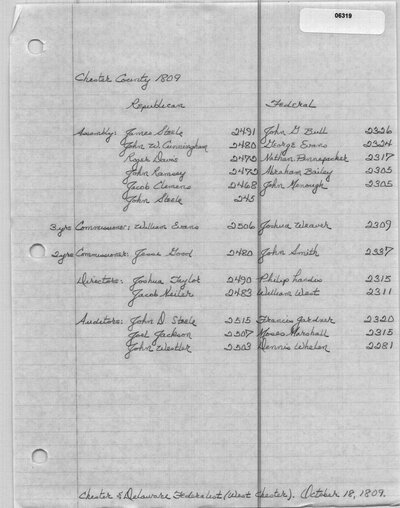 06319
Chester County 1809
Republican Federal
Assembly: James Steele 2491 John G Bull 2326
John W. Cunningham 2480 George Evans 2324
Roger Davis 2470 Nathan Pennepacker 2317
John Ramsey 2472 Abraham Bailey 2305
Jacob Clemens 2468 John Menough 2305
John Steele 245
3 yrs Commissioner: William Evans 2506 Joshua Weaver 2309
2 yrs Commissioner: Jesse Good 2480 John Smith 2337
Directors: Joshua Taylor 2490 Philip Landis 2315
Jacob 2483 William West 2311
Auditors: John D Steele 2515 Francis Gardner 2320
Joel Jackson 2507 Moses Marshall 2315
John 2503 Dennis Whelen 2281
Chester & Delaware Federalist (West Chester). October 18, 1809.